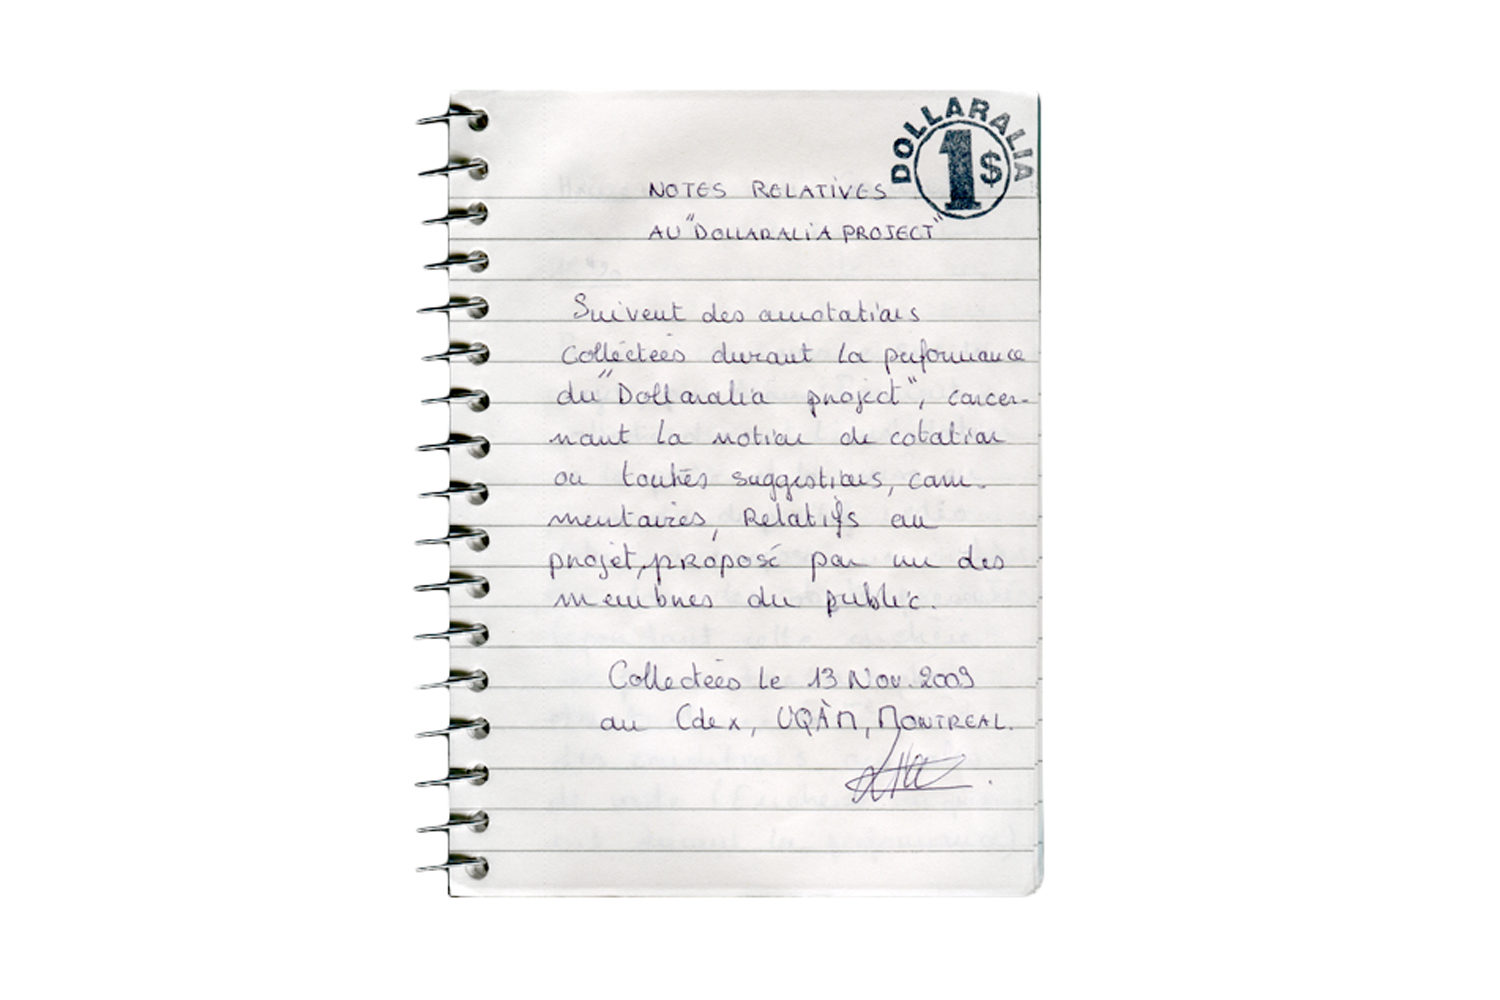 DOLLARALIA
1$
NOTES RELATIVES
AU "DOLLARALIA PROJECT"
Suivent des annotations
Colléctées durant la performance
du "Dollaralia project", concer-
nant la notion de cotation
ou toutes suggestions, com-
mentaires, Relatifs au
projet, proposé par un des
membres du public.
Collectées le 13 Nov. 2009
au Cdex, UQÀM, MONTREAL.